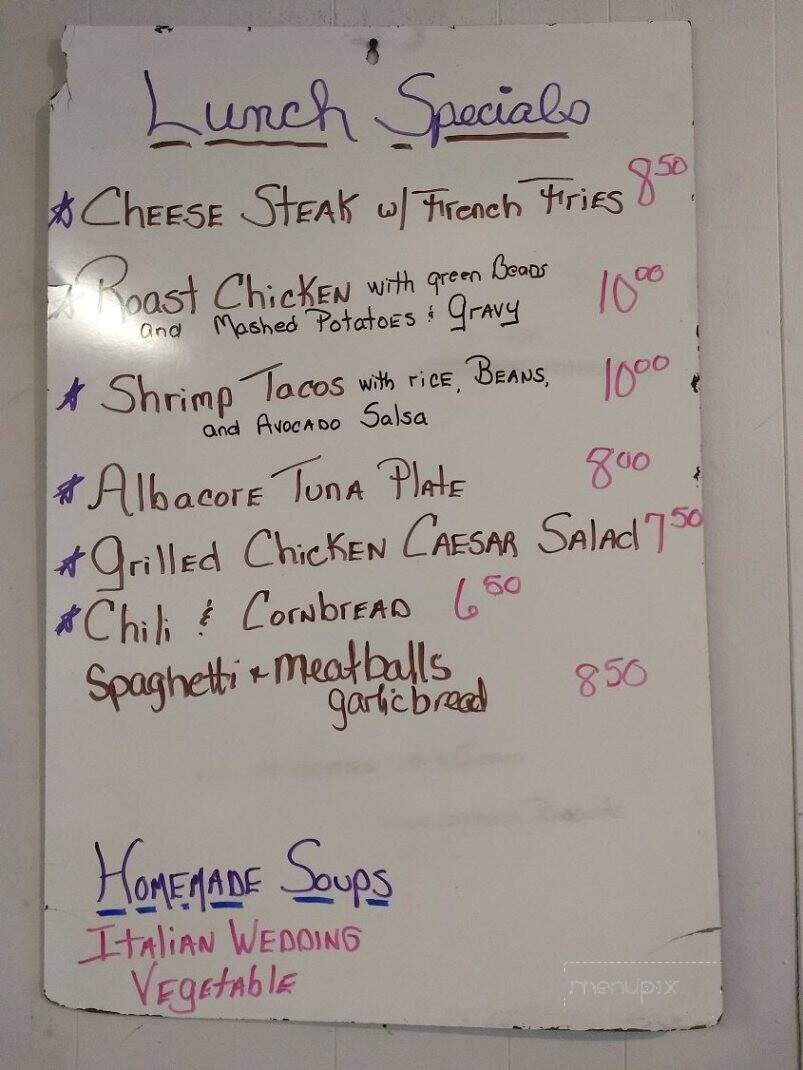 Lunch Specials
Cheese Steak w/ French Fries 8.50
Roast Chicken with green Beans 10.00
and Mashed Potatoes & Gravy
Shrimp Tacos with rice, Beans, 10.00
and Avocado Salsa
Albacore Tuna Plate 8.00
Grilled Chicken Caesar Salad 7.50
Chili & Cornbread 6.50
Spaghetti + meatballs 8.50
garlic bread
Homemade Soups
Italian Wedding
Vegetable
menupix